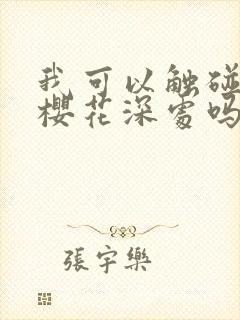 我可以触碰
樱花深处吗
張宇樂